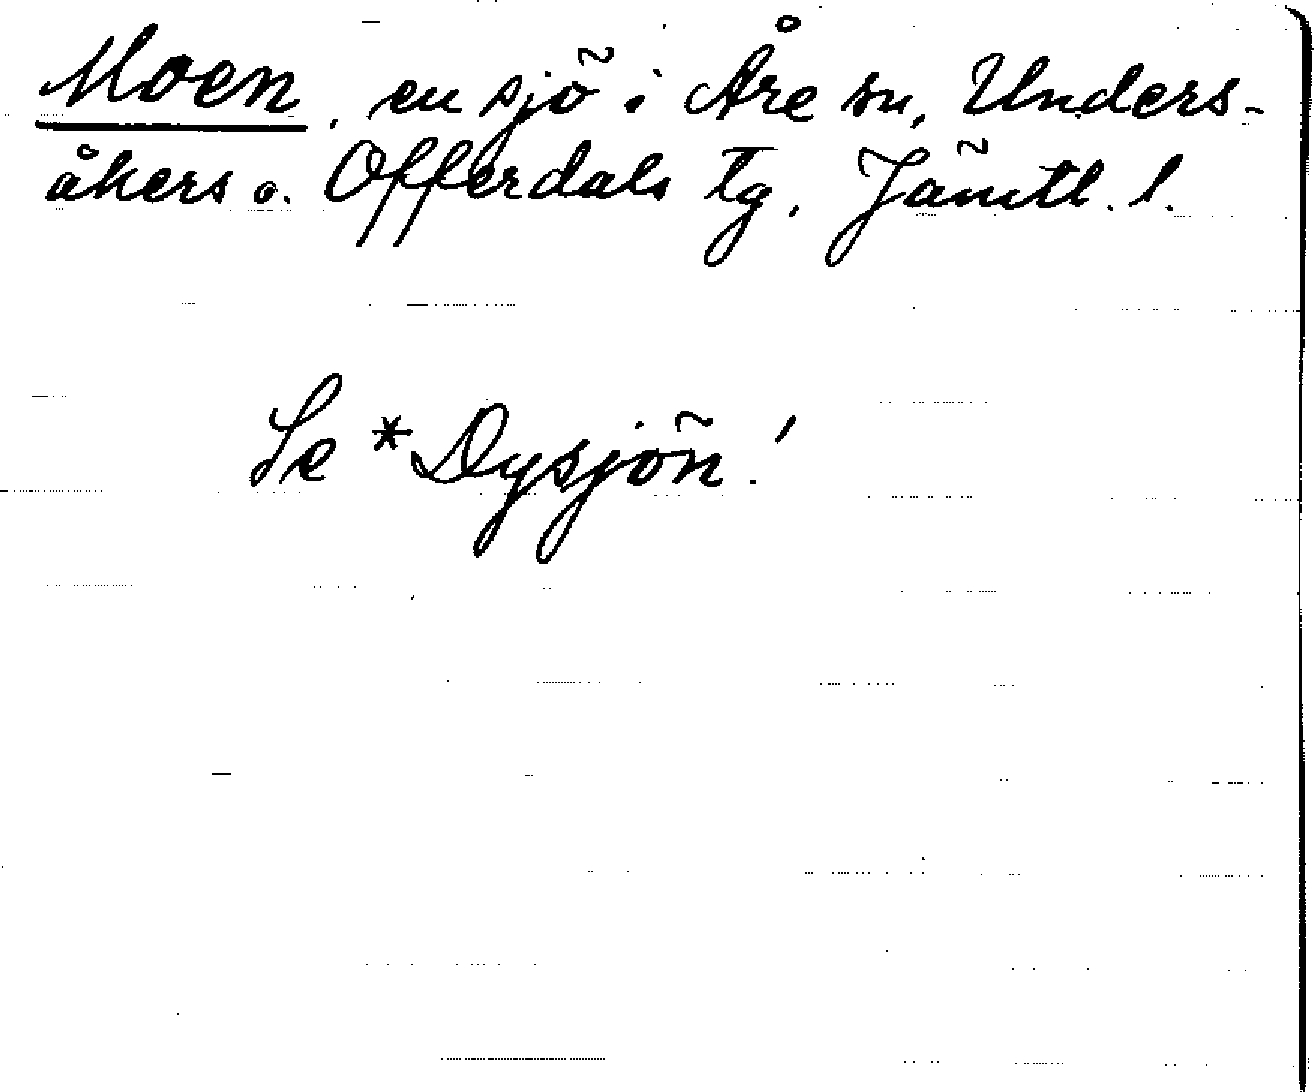 Moen, en sjö i Åre sn, Unders-
åkers o. Offerdals tg. Jämtl. l.
Se *Dysjön!